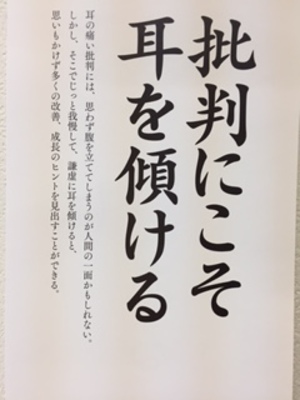 批判にこそ
耳を傾ける
耳の痛い批判には、思わず腹を立ててしまうのが人間の一面かもしれない。
しかし、そこでじっと我慢して、謙虚に耳を傾けると、
思いもかけず多くの改善、成長のヒントを見出すことができる。